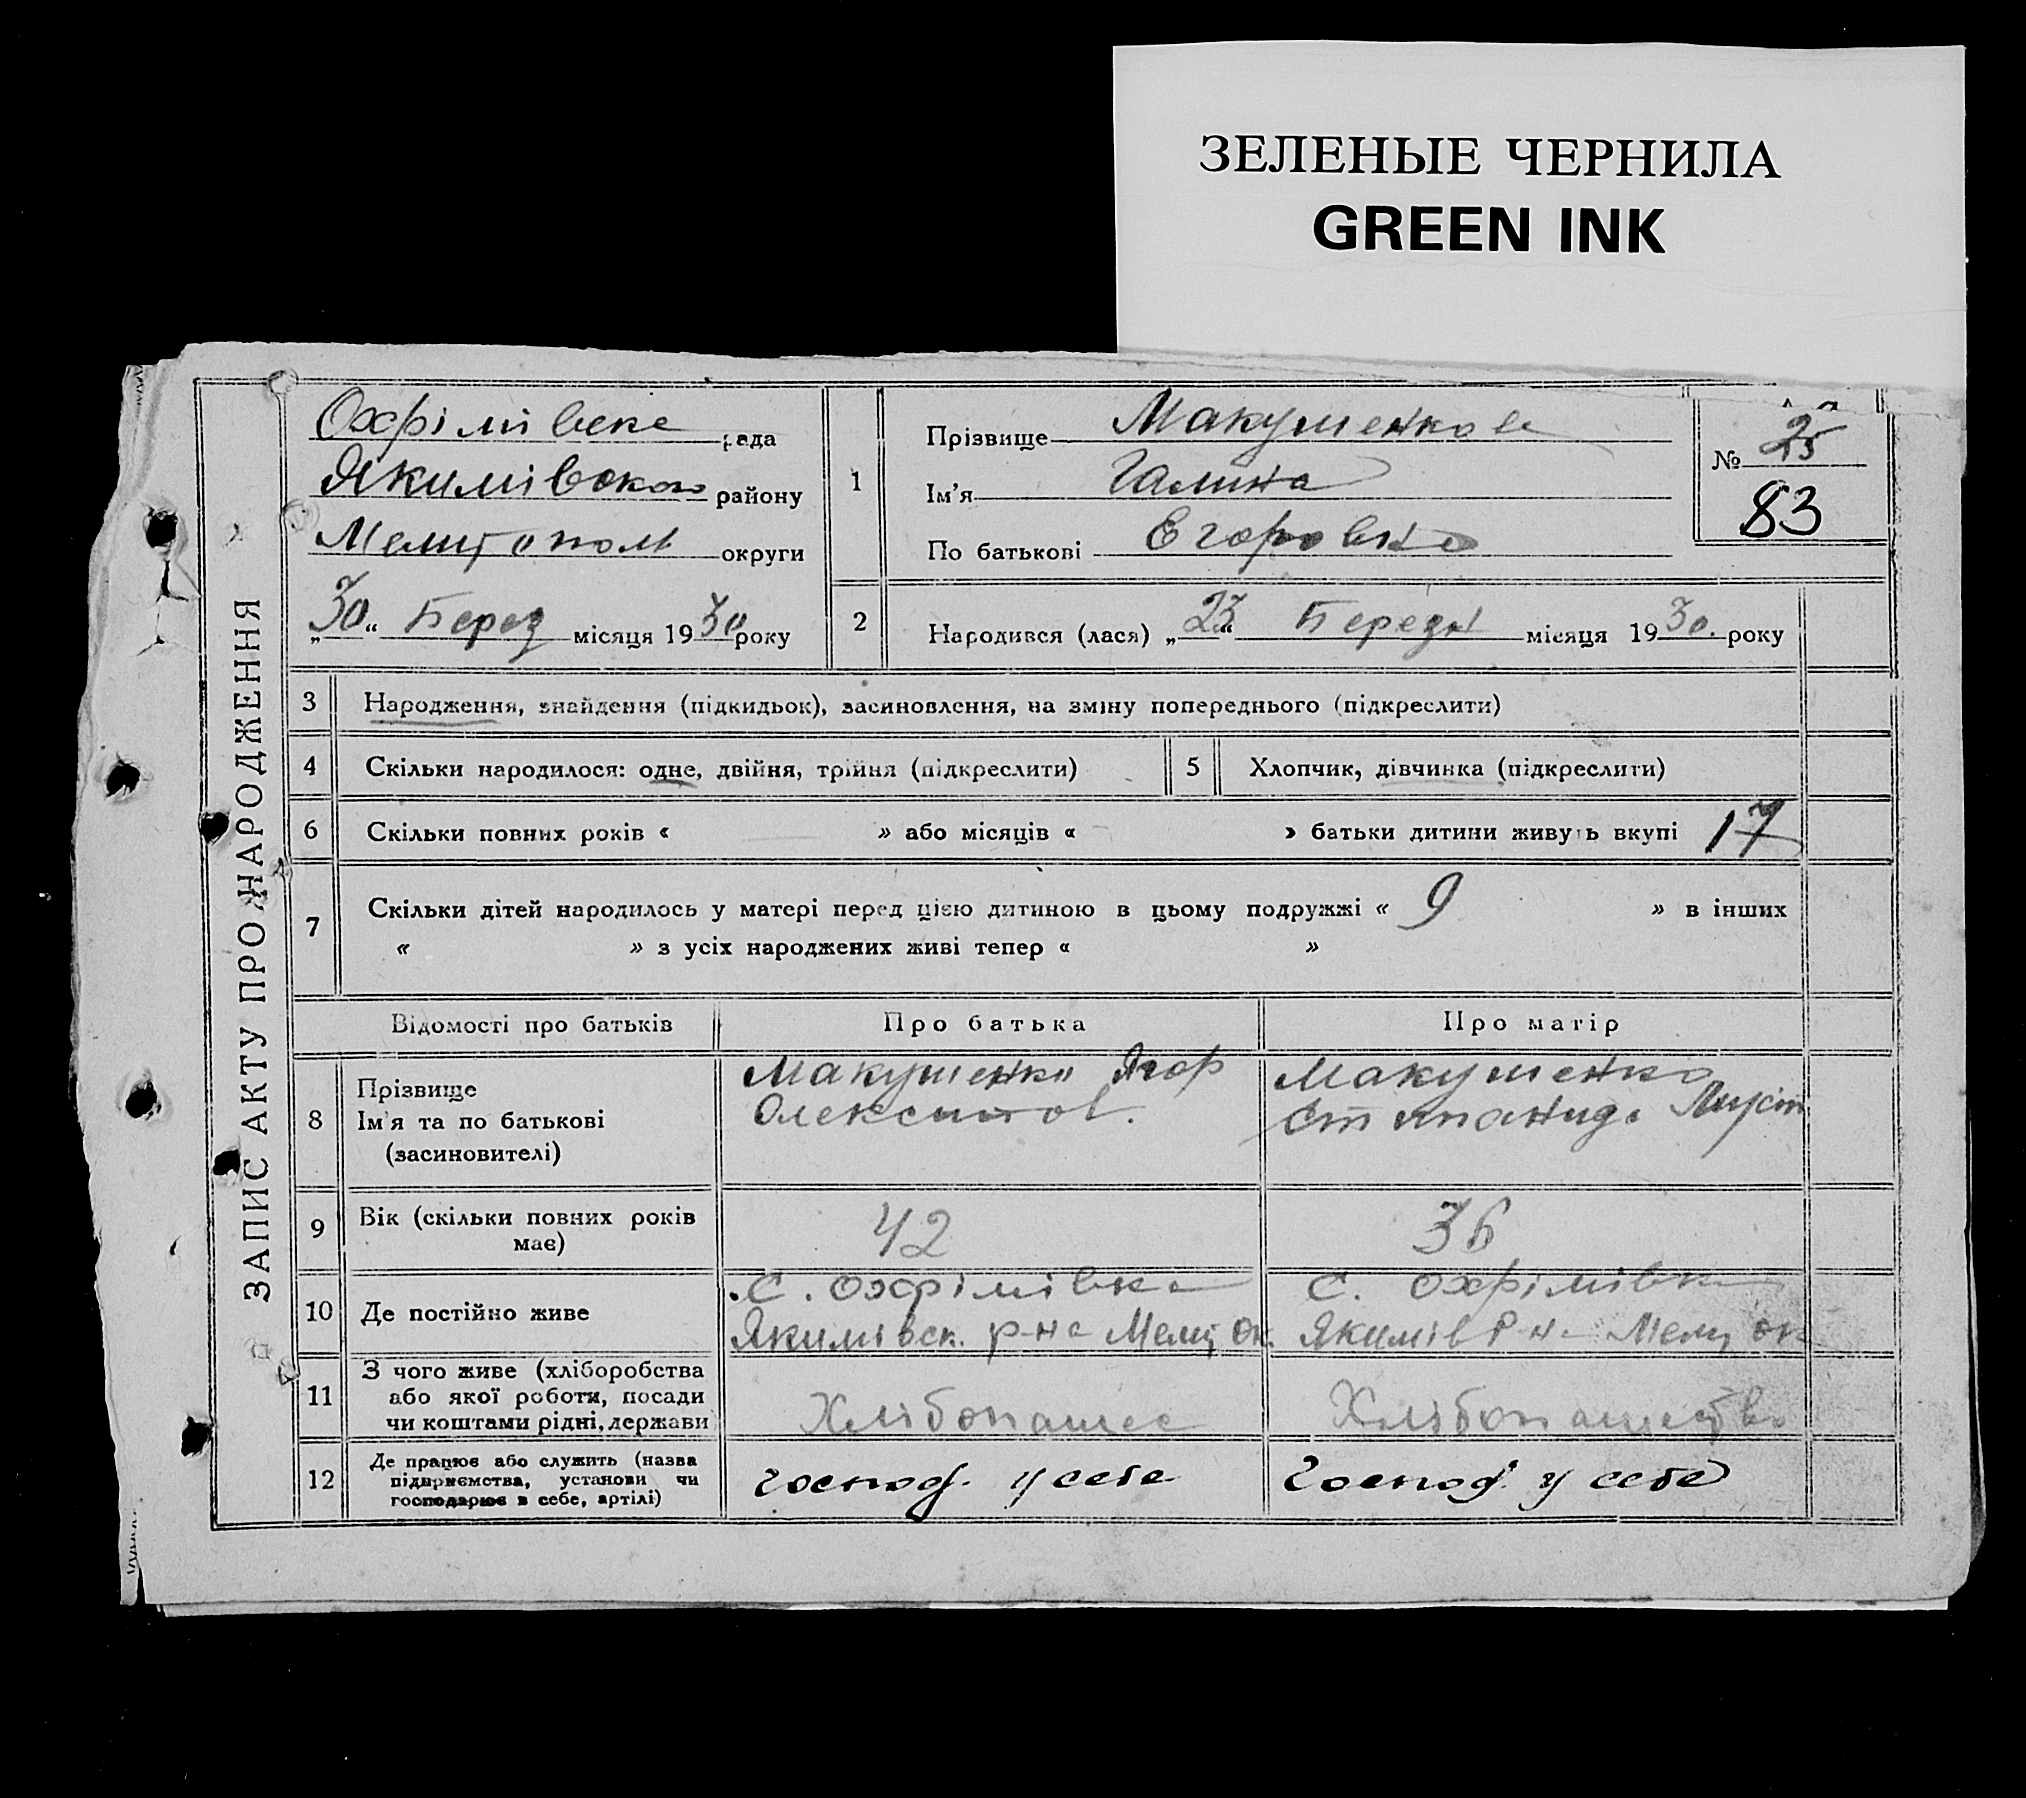 ЗЕЛЕНЫЕ ЧЕРНИЛА
GREEN INK
ЗАПИС АКТУ ПРО НАРОДЖЕННЯ
Охрімівске рада
Якимівского району
Мелитополь округи
„30“ Берез місяця 1930 року
1
Прізвище Макушенкова
Ім'я Галина
По батькові Егоровна
№ 25
83
2 Народився (лася) „23“ Березн місяця 1930. року
3 Народження, знайдення (підкидьок), засиновлення, на зміну попереднього (підкреслити)
4 Скільки народилося: одне, двійня, трійня (підкреслити)
5 Хлопчик, дівчинка (підкреслити)
6 Скільки повних років « » або місяців « » батьки дитини живуть вкупі 17
7 Скільки дітей народилось у матері перед цією дитиною в цьому подружжі « 9 » в інших
« » з усіх народжених живі тепер « »
Відомості про батьків Про батька Про матір
8 Прізвище
Ім'я та по батькові
(засиновителі)
Макушенко Ягор
Макушенко
Степанида
9 Вік (скільки повних років
має)
42
36
10 Де постійно живе
с. Охрімівка
Якимівск. р-на Мелит Ок.
с. Охрімівка
Якимів Р-на Мелит ок
11 З чого живе (хліборобства
або якої роботи, посади
чи коштами рідні, держави
Хлібопашес
Хлібопашество
12 Де працює або служить (назва
підприємства, установи чи
господарює в себе, артілі)
господ. у себе
Господ. у себе